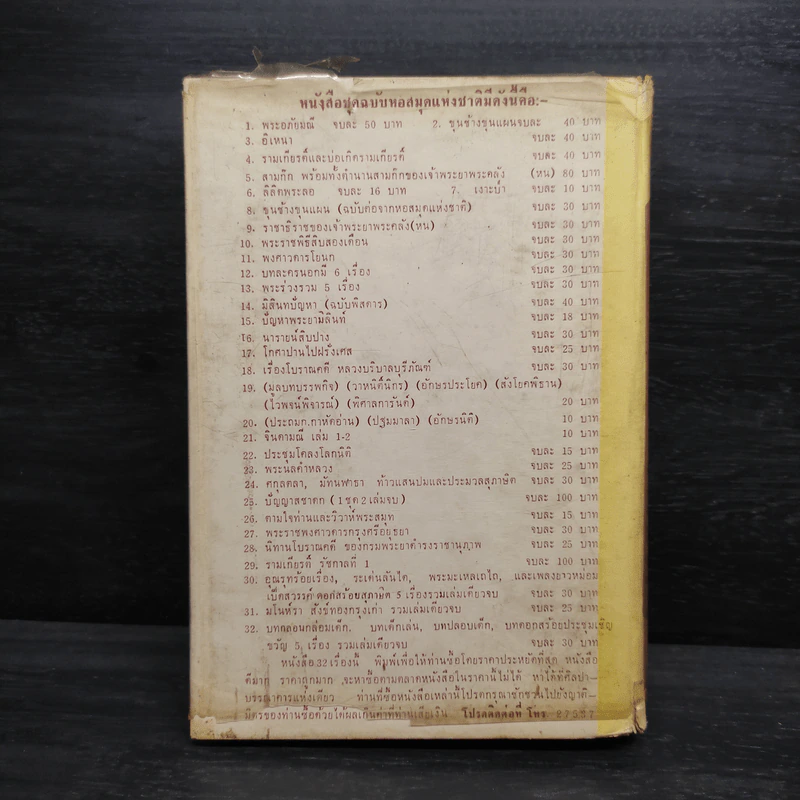 หนังสือชุดฉบับหอสมุดแห่งชาติมีดังนี้คือ:-
1. พระอภัยมณี จบละ 50 บาท 2. ขุนช้างขุนแผนจบละ 40 บาท
3. อิเหนา จบละ 40 บาท
4. รามเกียรติ์และบ่อเกิดรามเกียรติ์ จบละ 40 บาท
5. สามก๊ก พร้อมทั้งตำนานสามก๊กของเจ้าพระยาพระคลัง (หน) 80 บาท
6. ลิลิตพระลอ จบละ 16 บาท 7. เงาะป่า จบละ 10 บาท
8. ขุนช้างขุนแผน (ฉบับต่อจากหอสมุดแห่งชาติ) จบละ 30 บาท
9. ราชาธิราชของเจ้าพระยาพระคลัง(หน) จบละ 30 บาท
10. พระราชพิธีสิบสองเดือน จบละ 30 บาท
11. พงศาวดารโยนก จบละ 30 บาท
12. บทละครนอกมี 6 เรื่อง จบละ 30 บาท
13. พระร่วงรวม 5 เรื่อง จบละ 30 บาท
14. มิลินทปัญหา (ฉบับพิสดาร) จบละ 40 บาท
15. ปัญหาพระยามิลินท์ จบละ 18 บาท
16. นารายน์สิบปาง จบละ 30 บาท
17. โกศาปานไปฝรั่งเศส จบละ 25 บาท
18. เรื่องโบราณคดี หลวงบริบาลบุรีภัณฑ์ จบละ 30 บาท
19. (มูลบทบรรพกิจ) (วาหนิติ์นิกร) (อักษรประโยค) (สังโยคพิธาน)
(ไวพจน์พิจารณ์) (พิศาลการันต์) 20 บาท
20. (ประถมก.กาหัดอ่าน) (ปฐมมาลา) (อักษรนิติ) 10 บาท
21. จินดามณี เล่ม 1-2 10 บาท
22. ประชุมโคลงโลกนิติ จบละ 15 บาท
23. พระนลคำหลวง จบละ 25 บาท
24. ศกุลตลา, มัทนพาธา ท้าวแสนปมและประมวลสุภาษิต จบละ 30 บาท
25. ปัญญาสชาดก (1 ชุด 2 เล่มจบ) จบละ 100 บาท
26. ตามใจท่านและวิวาห์พระสมุท จบละ 15 บาท
27. พระราชพงศาวดารกรุงศรีอยุธยา จบละ 30 บาท
28. นิทานโบราณคดี ของกรมพระยาดำรงราชานุภาพ จบละ 25 บาท
29. รามเกียรติ์ รัชกาลที่ 1 จบละ 100 บาท
30. อุณรุทร้อยเรื่อง, ระเด่นลันได, พระมะเหลเถไถ, และเพลงยาวหม่อม
เป็ดสวรรค์-ดอกสร้อยสุภาษิต 5 เรื่องรวมเล่มเดียวจบ จบละ 30 บาท
31. มโนห์รา สังข์ทองกรุงเก่า รวมเล่มเดียวจบ จบละ 25 บาท
32. บทกล่อนกล่อมเด็ก, บทเด็กเล่น, บทปลอบเด็ก, บทดอกสร้อยประชุมเชิญ
ขวัญ 5 เรื่อง รวมเล่มเดียวจบ จบละ 30 บาท
หนังสือ 32 เรื่องนี้ พิมพ์เพื่อให้ท่านซื้อโดยราคาประหยัดที่สุด หนังสือ
ดีมาก ราคาถูกมาก จะหาซื้อตามตลาดหนังสือในราคานี้ไม่ได้ หาได้ที่ศิลปา-
บรรณาคารแห่งเดียว ท่านที่ซื้อหนังสือเหล่านี้โปรดกรุณาชักชวนไปยังญาติ-
มิตรของท่านซื้อด้วยได้ผลเกินค่าที่ท่านเสียเงิน โปรดติดต่อที่ โทร. 27537